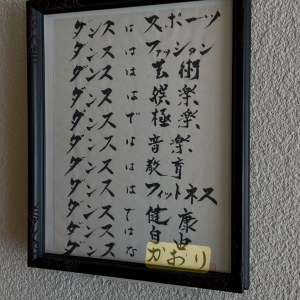 ダンス は スポーツ
ダンス は ファッション
ダンス は 芸術
ダンス は 娯楽
ダンス で 極楽
ダンス は 音楽
ダンス は 教育
ダンス は フィットネス
ダンス で 健康
ダンス は 自由
ダンス な かおり